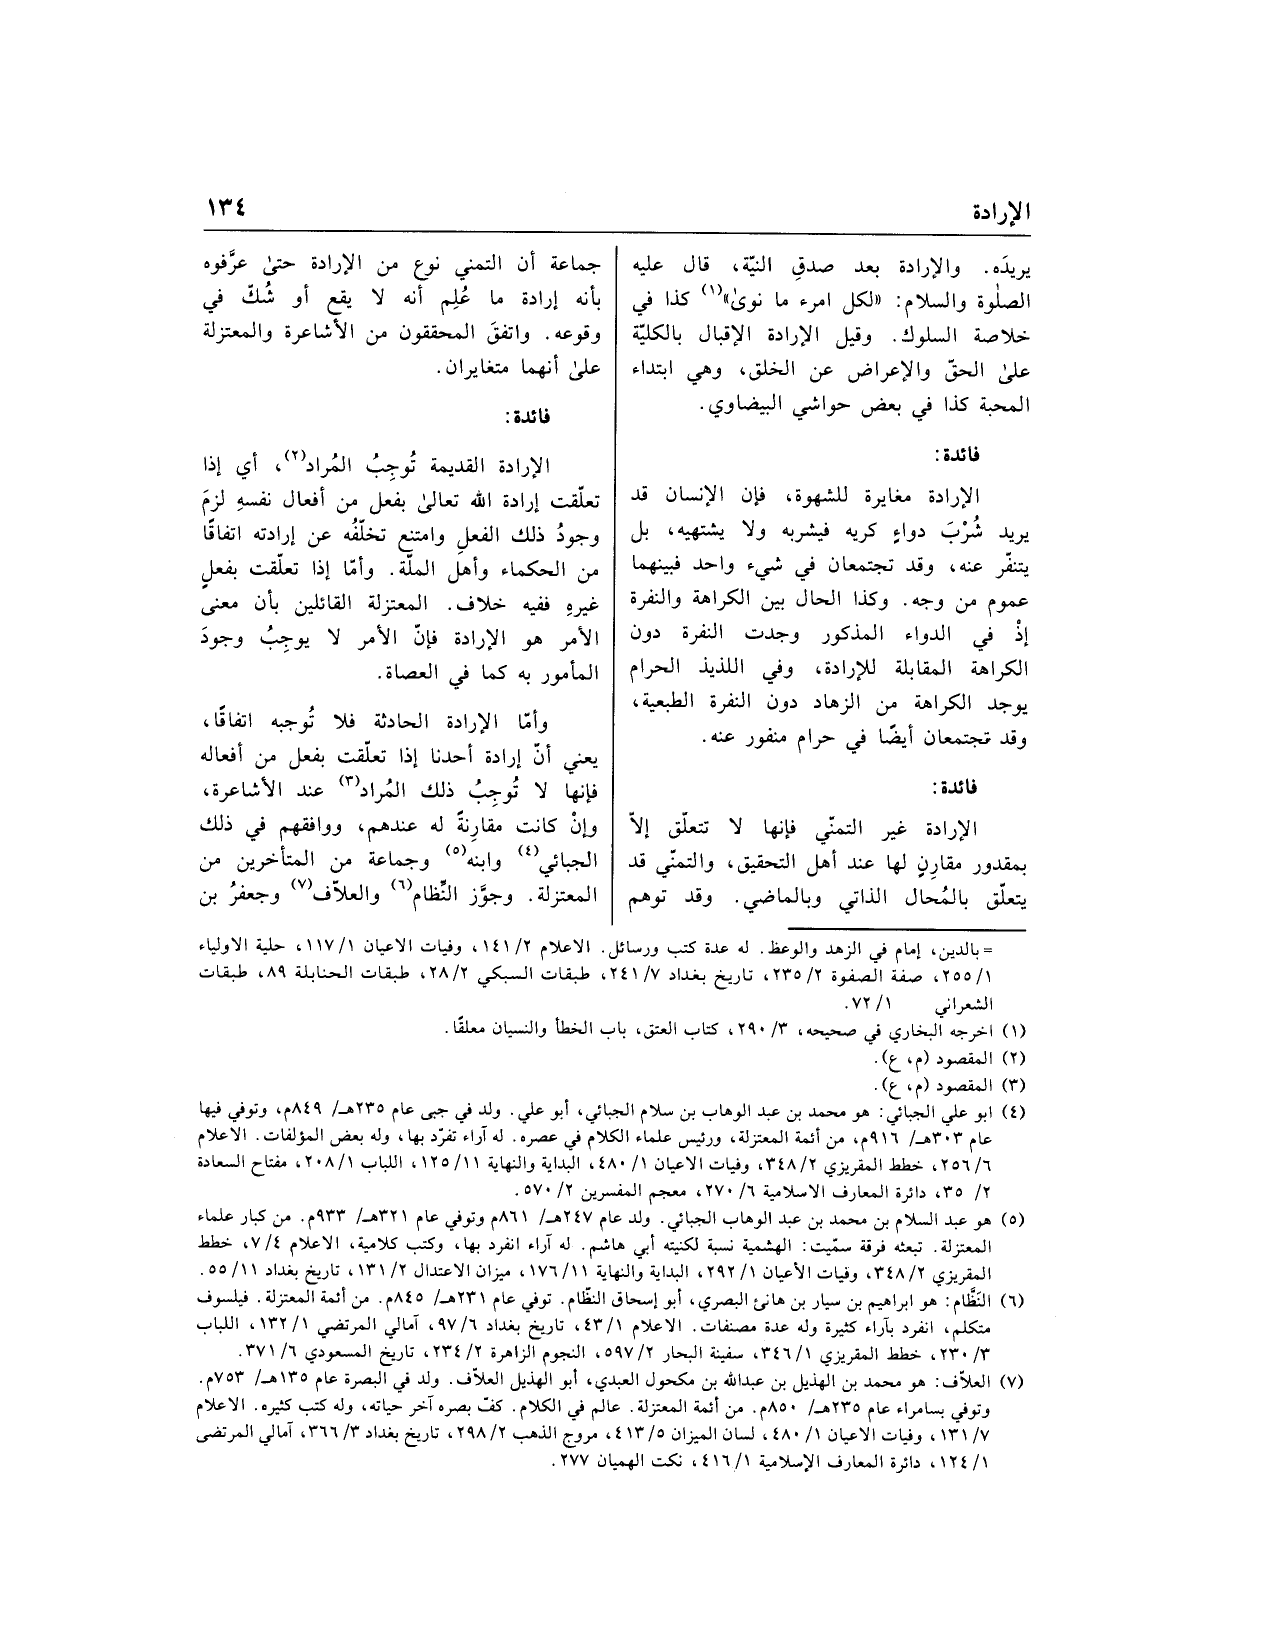 الإرادة
١٣٤
يريدَه. والإرادة بعد صدقِ النيّة، قال عليه
الصلٰوة والسلام: «لكل امرء ما نوىٰ»(١) كذا في
خلاصة السلوك. وقيل الإرادة الإقبال بالكليّة
علىٰ الحقّ والإعراض عن الخلق، وهي ابتداء
المحبة كذا في بعض حواشي البيضاوي.
فائدة:
الإرادة مغايرة للشهوة، فإن الإنسان قد
يريد شُرْبَ دواءٍ كريه فيشربه ولا يشتهيه، بل
يتنفّر عنه، وقد تجتمعان في شيء واحد فبينهما
عموم من وجه. وكذا الحال بين الكراهة والنفرة
إذْ في الدواء المذكور وجدت النفرة دون
الكراهة المقابلة للإرادة، وفي اللذيذ الحرام
يوجد الكراهة من الزهاد دون النفرة الطبعية،
وقد تجتمعان أيضًا في حرام منفور عنه.
فائدة:
الإرادة غير التمنّي فإنها لا تتعلّق إلاّ
بمقدور مقارِنٍ لها عند أهل التحقيق، والتمنّي قد
يتعلّق بالمُحال الذاتي وبالماضي. وقد توهم
جماعة أن التمني نوع من الإرادة حتىٰ عرَّفوه
بأنه إرادة ما عُلِم أنه لا يقع أو شُكّ في
وقوعه. واتفقَ المحققون من الأشاعرة والمعتزلة
علىٰ أنهما متغايران.
فائدة:
الإرادة القديمة تُوجِبُ المُراد(٢)، أي إذا
تعلّقت إرادة الله تعالىٰ بفعل من أفعال نفسهِ لزمَ
وجودُ ذلك الفعلِ وامتنع تخلّفُه عن إرادته اتفاقًا
من الحكماء وأهل الملّة. وأمّا إذا تعلّقت بفعلٍ
غيرهِ ففيه خلاف. المعتزلة القائلين بأن معنى
الأمر هو الإرادة فإنّ الأمر لا يوجِبُ وجودَ
المأمور به كما في العصاة.
وأمّا الإرادة الحادثة فلا تُوجبه اتفاقًا،
يعني أنّ إرادة أحدنا إذا تعلّقت بفعل من أفعاله
فإنها لا تُوجِبُ ذلك المُراد(٣) عند الأشاعرة،
وإنْ كانت مقارِنةً له عندهم، ووافقهم في ذلك
الجبائي(٤) وابنه(٥) وجماعة من المتأخرين من
المعتزلة. وجوَّز النَّظام(٦) والعلاّف(٧) وجعفرُ بن
= بالدين، إمام في الزهد والوعظ. له عدة كتب ورسائل. الاعلام ١٤١/٢، وفيات الاعيان ١١٧/١، حلية الاولياء
٢٥٥/١، صفة الصفوة ٢٣٥/٢، تاريخ بغداد ٢٤١/٧، طبقات السبكي ٢٨/٢، طبقات الحنابلة ٨٩، طبقات
الشعراني ٧٢/١.
(١) اخرجه البخاري في صحيحه، ٢٩٠/٣، كتاب العتق، باب الخطأ والنسيان معلقًا.
(٢) المقصود (م، ع).
(٣) المقصود (م، ع).
(٤) ابو علي الجبائي: هو محمد بن عبد الوهاب بن سلام الجبائي، أبو علي. ولد في جبى عام ٢٣٥هـ/ ٨٤٩م، وتوفي فيها
عام ٣٠٣هـ/ ٩١٦م، من أئمة المعتزلة، ورئيس علماء الكلام في عصره. له آراء تفرّد بها، وله بعض المؤلفات. الاعلام
٢٥٦/٦، خطط المقريزي ٣٤٨/٢، وفيات الاعيان ٤٨٠/١، البداية والنهاية ١٢٥/١١، اللباب ٢٠٨/١، مفتاح السعادة
٣٥/٢، دائرة المعارف الاسلامية ٢٧٠/٦، معجم المفسرين ٥٧٠/٢.
(٥) هو عبد السلام بن محمد بن عبد الوهاب الجبائي. ولد عام ٢٤٧هـ/ ٨٦١م وتوفي عام ٣٢١هـ/ ٩٣٣م. من كبار علماء
المعتزلة. تبعثه فرقة سمّيت: الهشمية نسبة لكنيته أبي هاشم. له آراء انفرد بها، وكتب كلامية، الاعلام ٧/٤، خطط
المقريزي ٣٤٨/٢، وفيات الأعيان ٢٩٢/١، البداية والنهاية ١٧٦/١١، ميزان الاعتدال ١٣١/٢، تاريخ بغداد ٥٥/١١.
(٦) النَّظَّام: هو ابراهيم بن سيار بن هانئ البصري، أبو إسحاق النظّام. توفي عام ٢٣١هـ/ ٨٤٥م. من أئمة المعتزلة. فيلسوف
متكلم، انفرد بآراء كثيرة وله عدة مصنفات. الاعلام ٤٣/١، تاريخ بغداد ٩٧/٦، آمالي المرتضي ١٣٢/١، اللباب
٢٣٠/٣، خطط المقريزي ٣٤٦/١، سفينة البحار ٥٩٧/٢، النجوم الزاهرة ٢٣٤/٢، تاريخ المسعودي ٣٧١/٦.
(٧) العلاّف: هو محمد بن الهذيل بن عبدالله بن مكحول العبدي، أبو الهذيل العلاّف. ولد في البصرة عام ١٣٥هـ/ ٧٥٣م.
وتوفي بسامراء عام ٢٣٥هـ/ ٨٥٠م. من أئمة المعتزلة. عالم في الكلام. كفّ بصره آخر حياته، وله كتب كثيره. الاعلام
١٣١/٧، وفيات الاعيان ٤٨٠/١، لسان الميزان ٤١٣/٥، مروج الذهب ٢٩٨/٢، تاريخ بغداد ٣٦٦/٣، آمالي المرتضى
١٢٤/١، دائرة المعارف الإسلامية ٤١٦/١، نكت الهميان ٢٧٧.